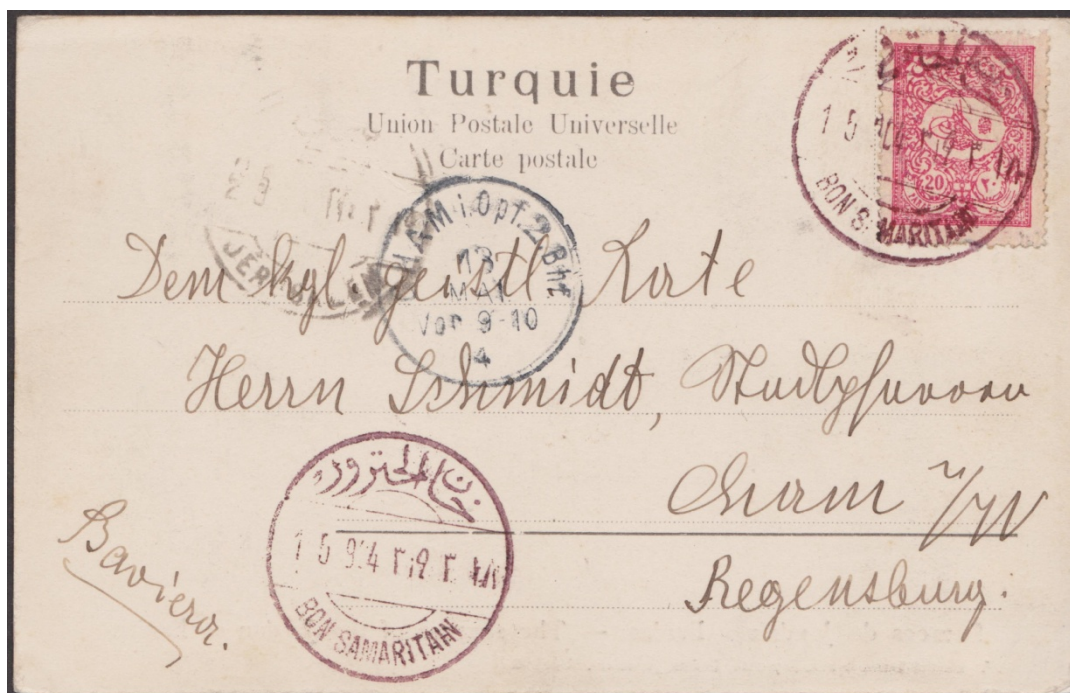 Turquie
Union Postale Universelle
Carte postale
20
1 5 904
BON SAMARITAIN
JERUSALEM
CHAM i.Opf. 2 Bhf
13
MAI
Vor 9-10
4
Dem kgl. geistl. Rate
Herrn Schmidt, Stadtpfarrer
Cham a/W
Regensburg.
Baviera.
خان الحترورة
1 5 904
BON SAMARITAIN